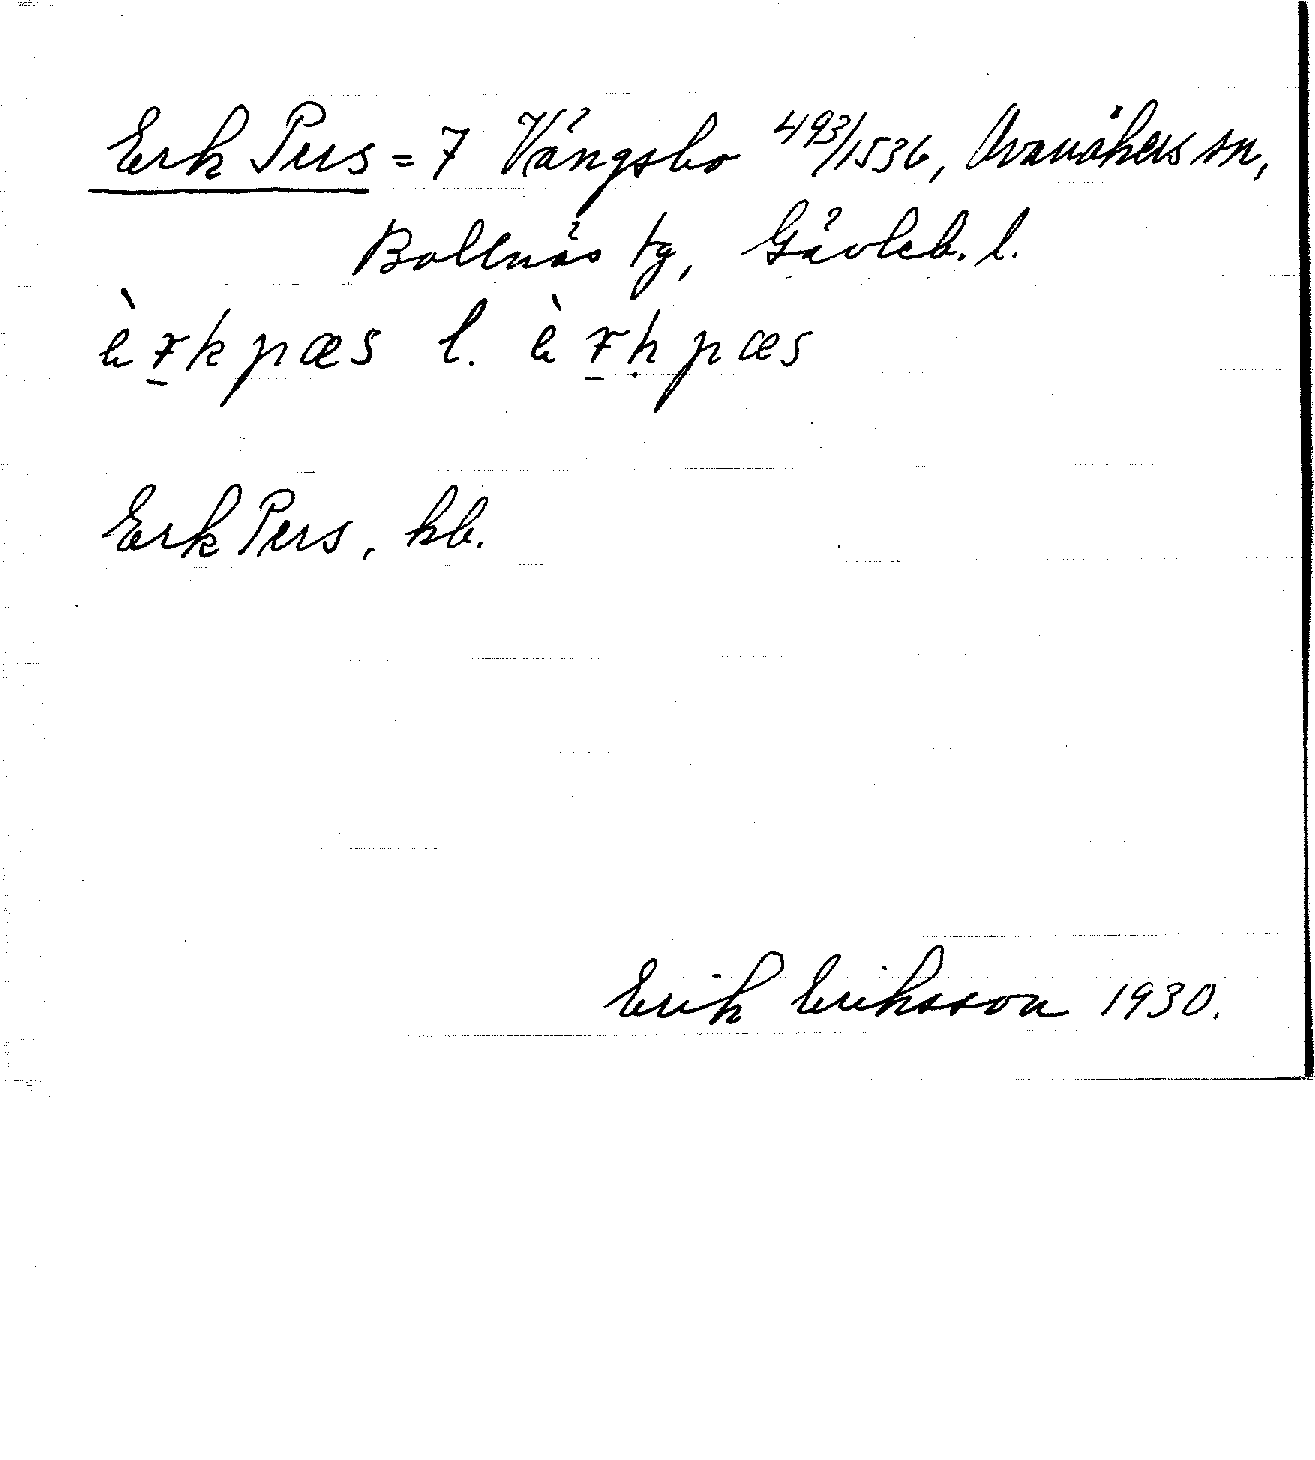 Erk Pers = 7 Vängsbo 493/1536, Ovanåkers sn,
Bollnäs tg, Gävleb. l.
è r̠kpæs l. è r̠ḳpæs
Erk Pers, kb.
Erik Eriksson 1930.